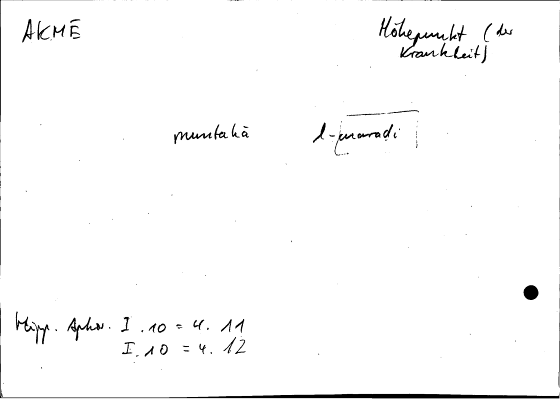 AKMĒ
Höhepunkt (der
Krankheit)
muntahā l-maraḍi
Hipp. Aphor. I.10 = 4.11
I.10 = 4.12